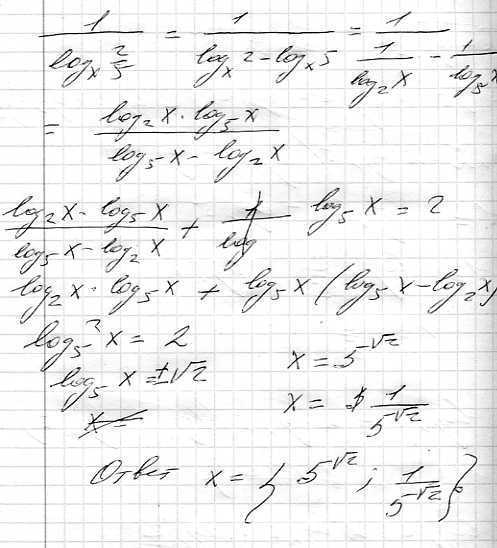 1/(logₓ 2/5) = 1/(logₓ2 - logₓ5) = 1/(1/(log₂x) - 1/(log₅x
= (log₂x · log₅x)/(log₅x - log₂x)
(log₂x · log₅x)/(log₅x - log₂x) + log₅x = 2
log₂x · log₅x + log₅x (log₅x - log₂x)
log₅²x = 2
log₅x = ±√2
x = 5^(-√2)
x = 1/(5^(√2))
Ответ x = { 5^(√2) ; 1/(5^(-√2)) }